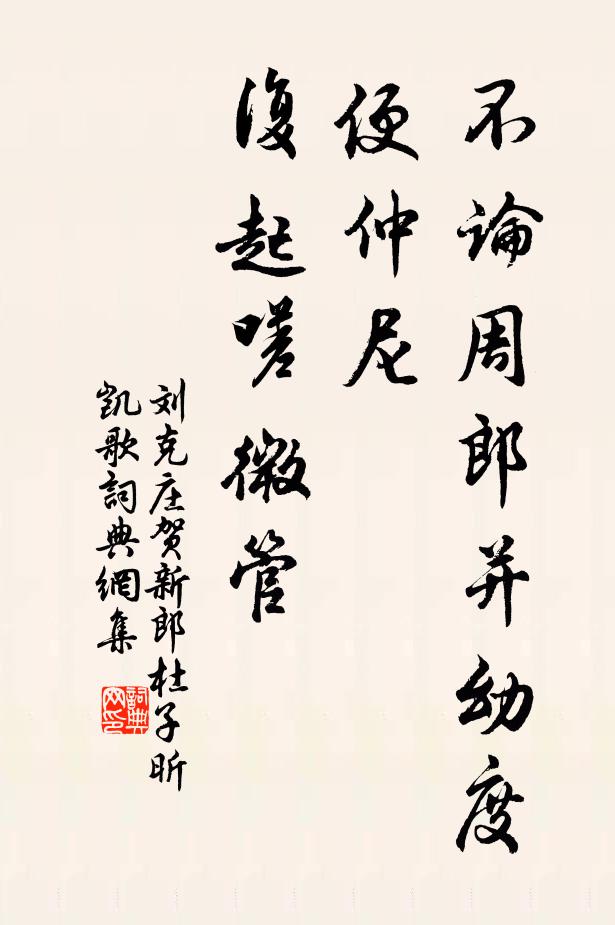 不論周郎并幼度
便仲尼
復起嗟微管
刘克庄贺新郎杜子昕
凯歌詞典網集
詞典網印